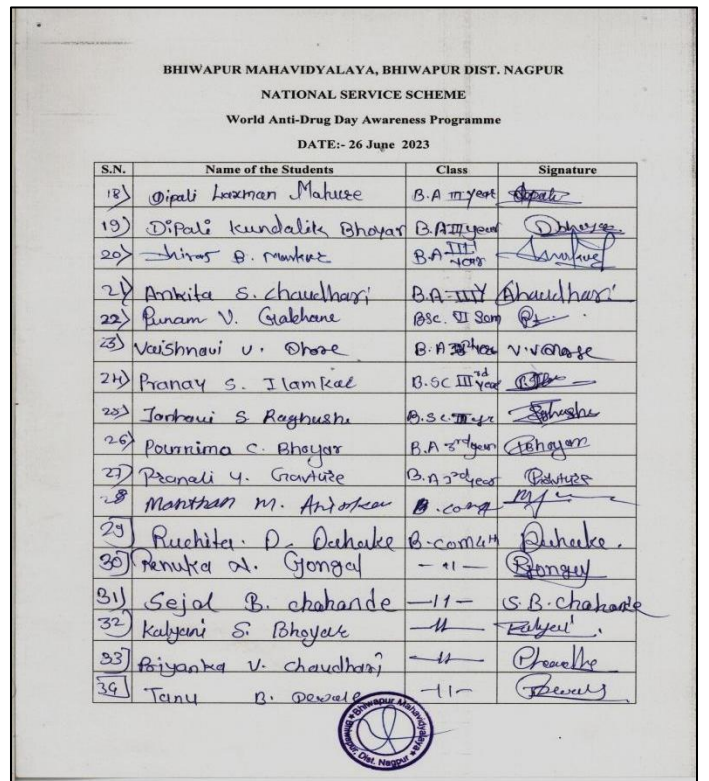 BHIWAPUR MAHAVIDYALAYA, BHIWAPUR DIST. NAGPUR
NATIONAL SERVICE SCHEME
World Anti-Drug Day Awareness Programme
DATE:- 26 June 2023
S.N. Name of the Students Class Signature
18) Dipali Laxman Mahure B.A III year
19) Dipali Kundalik Bhoyar B.A III year
20) B. B.A III year
21) Ankita S. Chaudhari B.A-III Y Chaudhari
22) Punam V. Bsc. VI Sem
23) Vaishnavi U. Dhore B.A
24) Pranay S. Ilamkar B.SC III rd year
25) Janhavi S Raghushe B.Sc. III yr
26) Pournima C. Bhoyar B.A 3rd year Bhoyar
27) Pranali Y. B.A 3rd year
28 Manthan M. B.com
29) Ruchita. D. Dahake B-com 4th Dahake.
30) Renuka N. Gongal -11-
31) Sejal B. chahande -11- S.B. chahande
32) Kalyani S. Bhoyar -11-
33) Priyanka V. Chaudhari -11-
34) Tanu B. Dewale -11-
Bhiwapur Mahavidyalaya
Bhiwapur, Dist. Nagpur